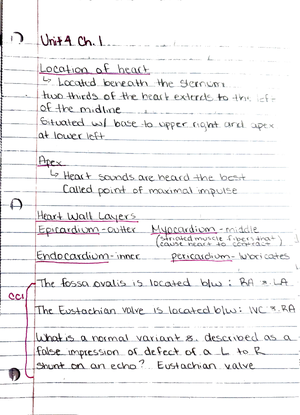 Unit 4 Ch. 1
Location of heart
↳ Located beneath the sternum
two thirds of the heart extends to the left
of the midline
Situated w/ base to upper right and apex
at lower left
Apex
↳ Heart sounds are heard the best
Called point of maximal impulse
Heart Wall Layers
Epicardium - outter Myocardium - middle
(striated muscle fibers that
cause heart to contract)
Endocardium - inner pericardium - lubricates
The fossa ovalis is located b/w : RA & LA
CC1
The Eustachian valve is located b/w : IVC & RA
What is a normal variant & described as a
false impression of defect of a L to R
shunt on an echo? Eustachian valve